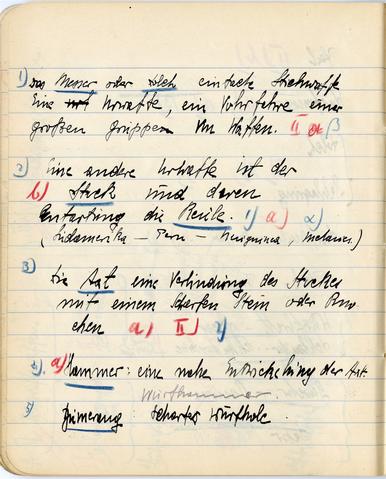 1) Das Messer oder Dolch einfache Stichwaffe
Eine Urwaffe, ein Vorfahre einer
großen Gruppen von Waffen. II a β
2) Eine andere Urwaffe ist der
b) Stock und deren
Entartung die Keule. 1) a) α)
(Südamerika – Peru – Neuguinea,
3) Die Axt eine Verbindung des Stockes
mit einem scharfen Stein oder Kno-
chen a) II)
4). a) Hammer: eine nahe Entwickelung der Axt.
Wurfhammer
5) Bumerang: scharfes Wurfholz.